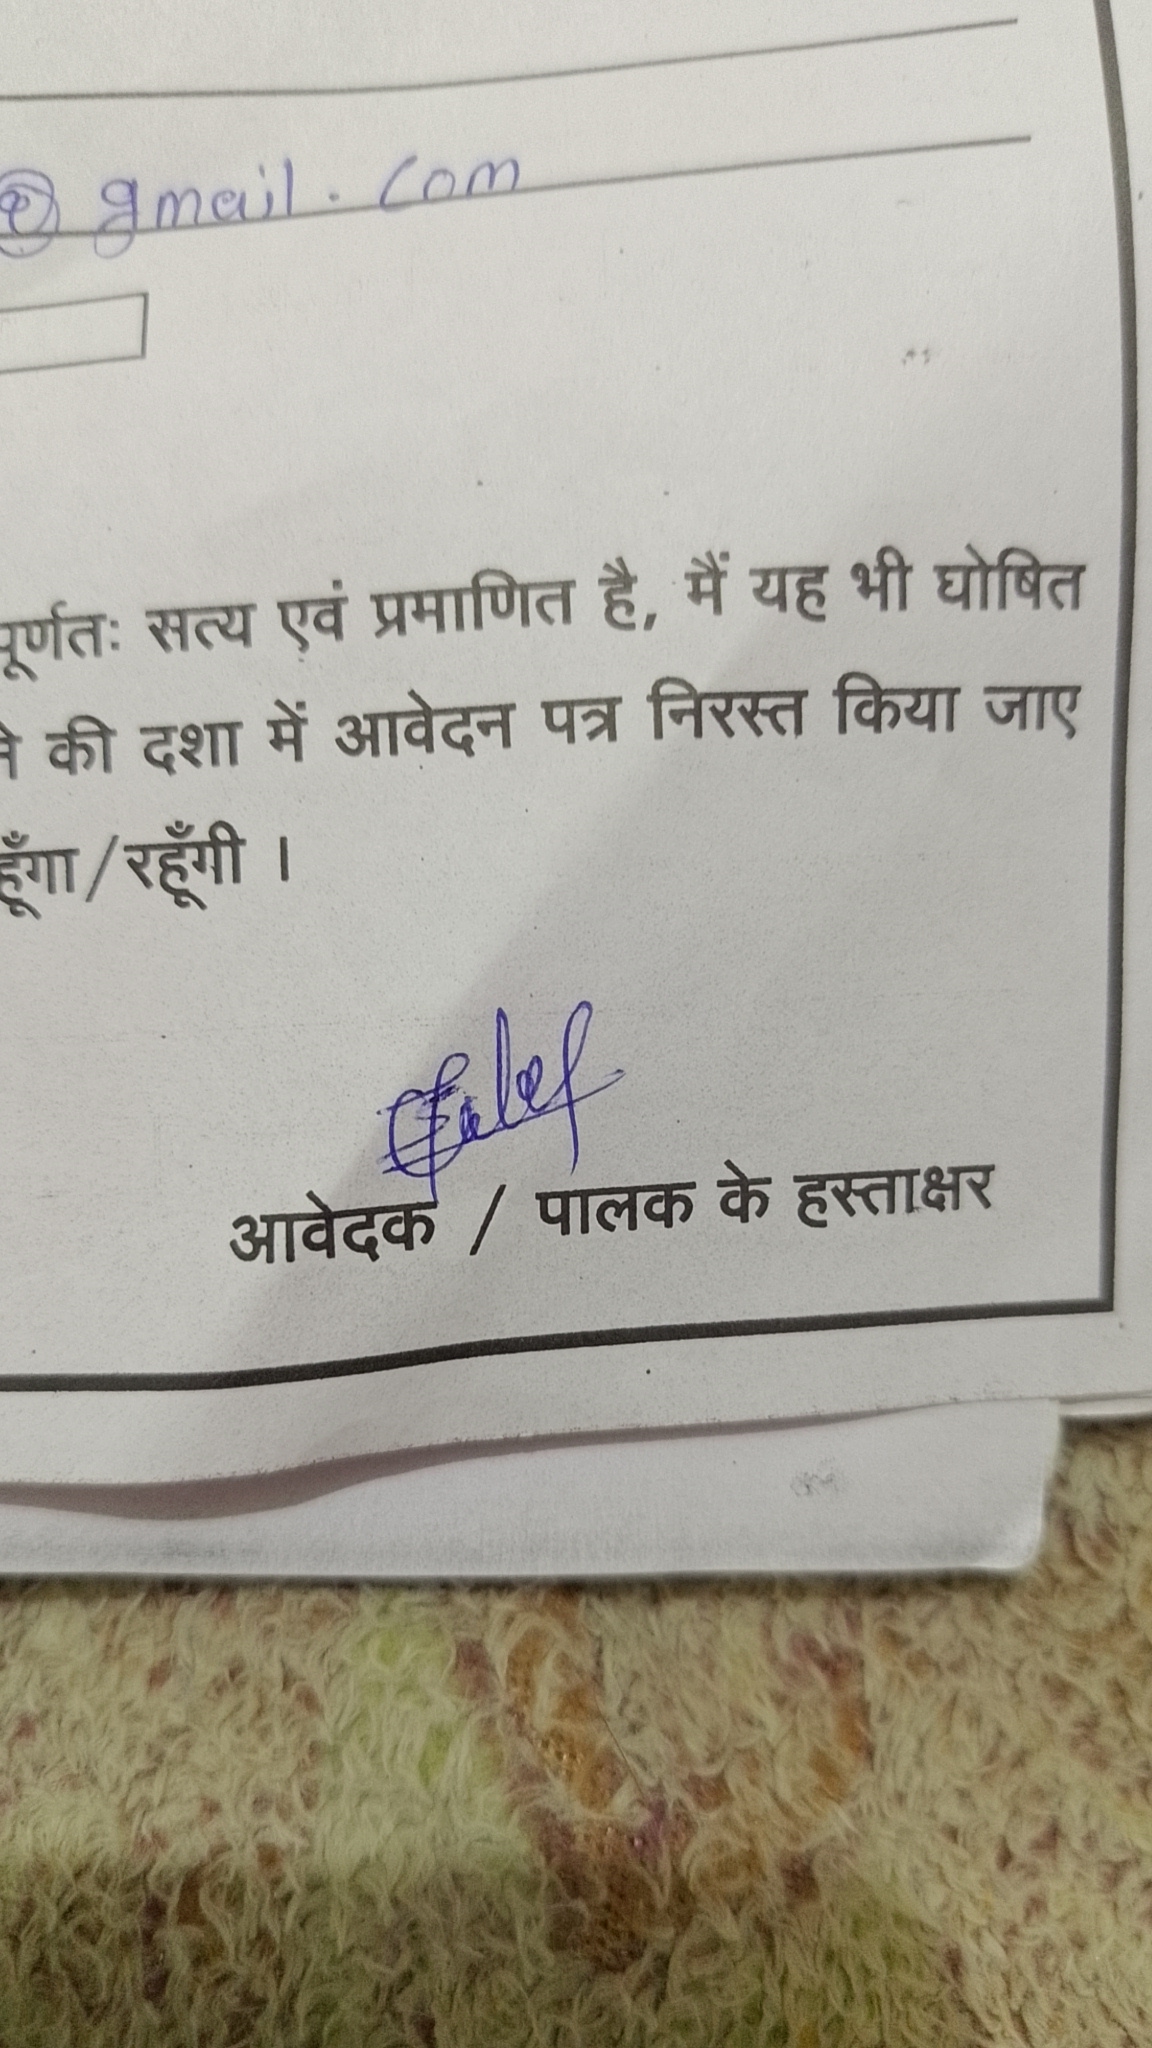 @gmail.com
पूर्णतः सत्य एवं प्रमाणित है, मैं यह भी घोषित
की दशा में आवेदन पत्र निरस्त किया जाए
/रहूँगी ।
आवेदक / पालक के हस्ताक्षर